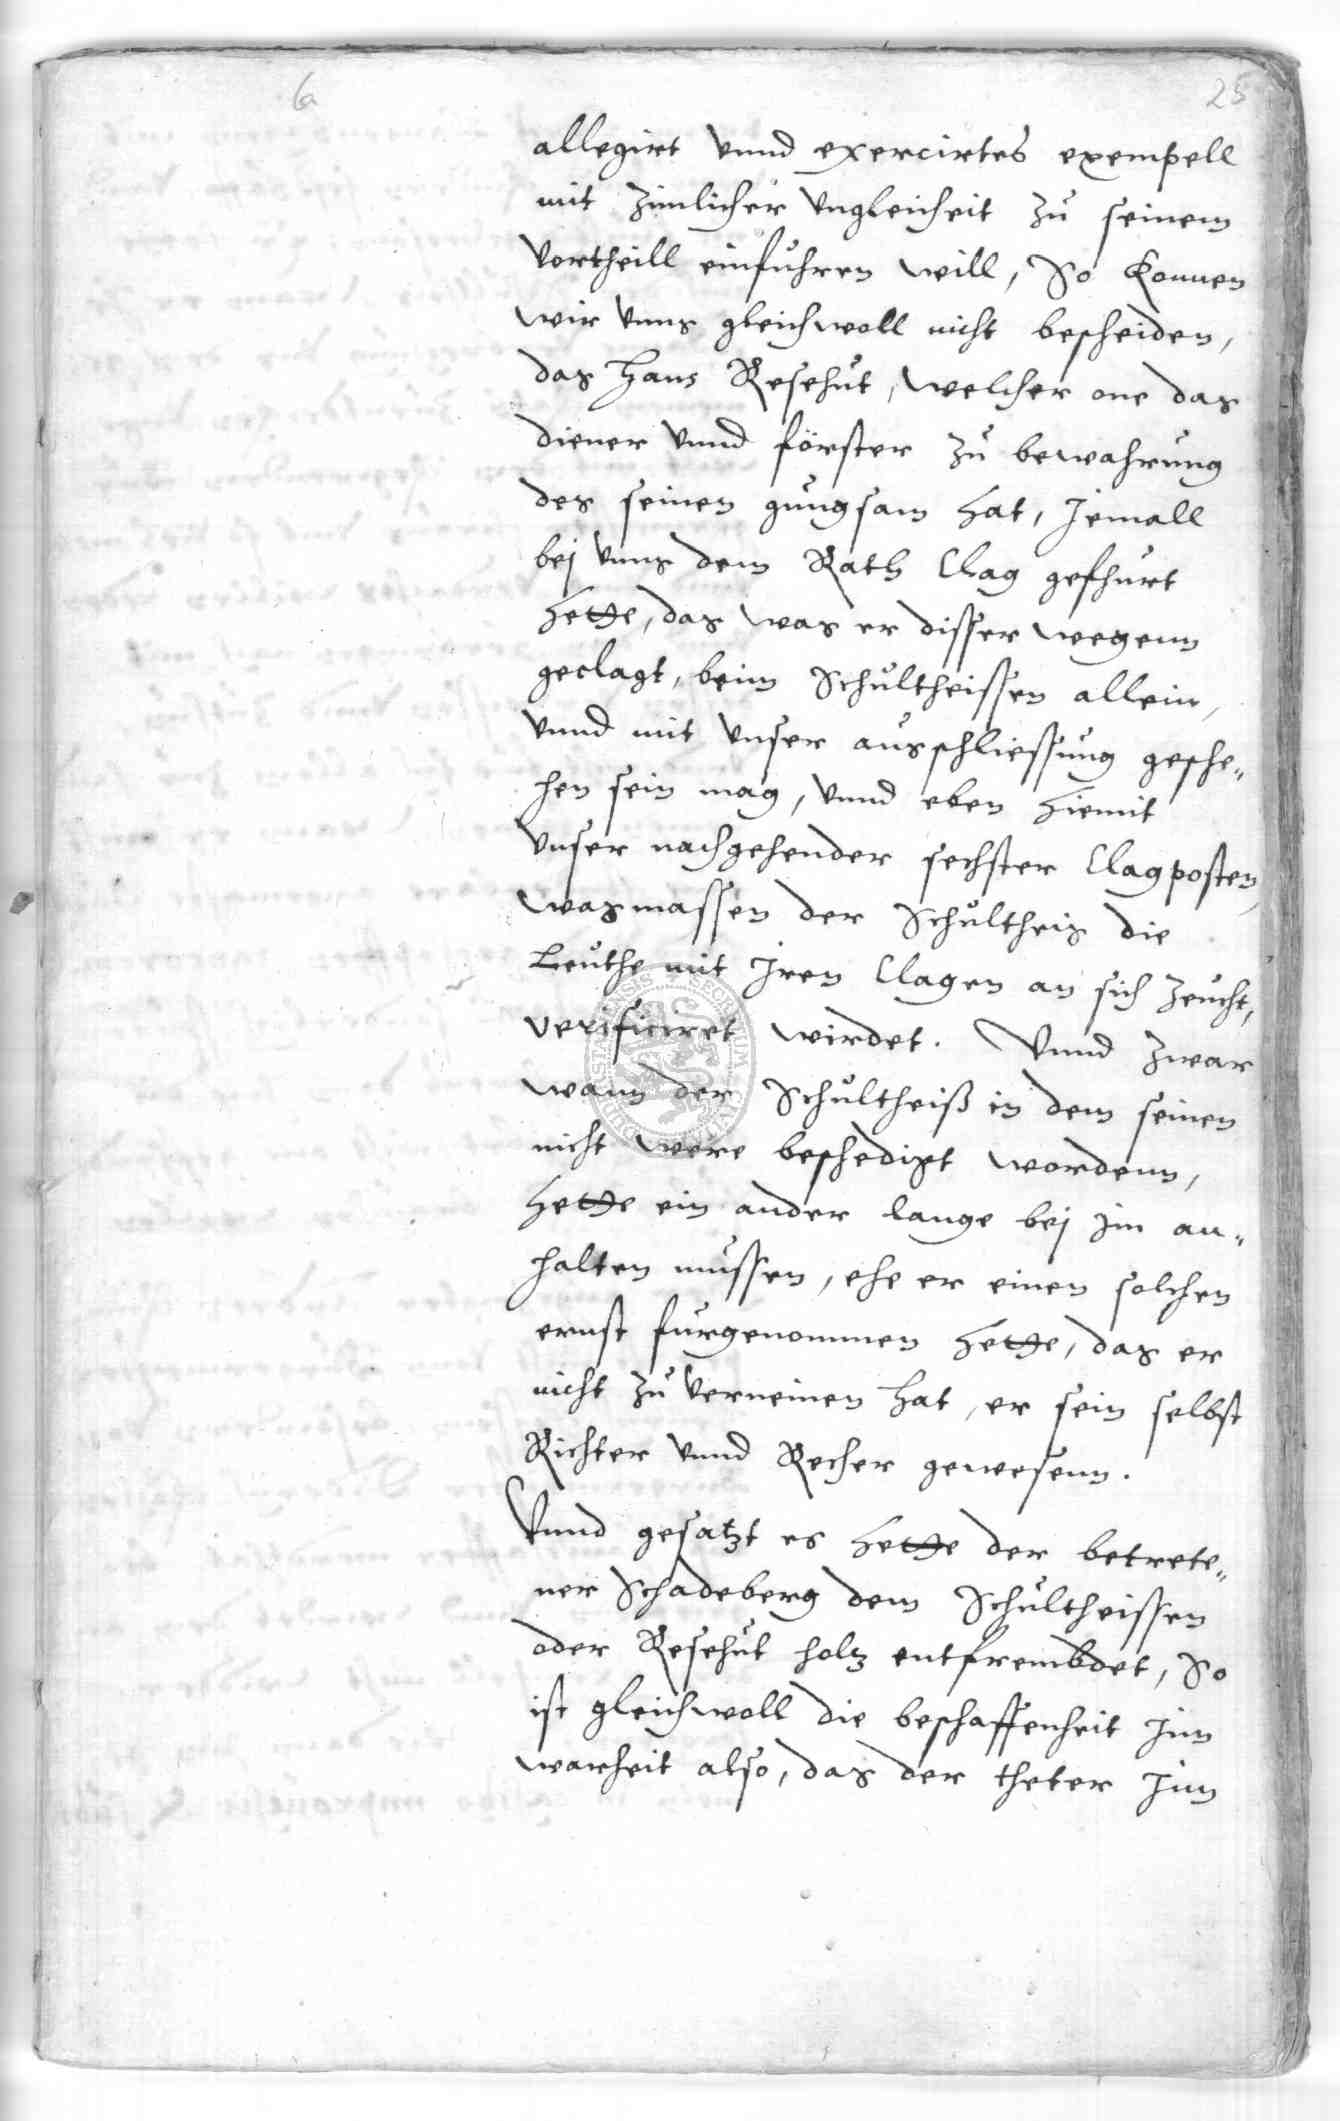 6a
25
allegirt vnnd exercirtes exempell
mit zimlicher vngleicheit zu seinem
vortheill einfuhren will, So konnen
wir vnns gleichwoll nicht bescheiden,
das Hans Resehut, welcher one das
diener vnnd förster zu bewahrung
des seinen gnugsam hat, Jemall
bej vnns dem Rath Clag gefhurt
hette, das was er disser wegenn
geclagt, beim Schultheissen allein,
vnnd mit vnser ausschliessung gesche„
hen sein mag, vnnd eben hiemit
vnser nachgehender sechster Clagposten,
wasmassen der Schultheis die
Leuthe mit Jren Clagen an sich zeucht,
verificiret wirdet. Vnnd zwar
wann der Schultheiß in dem seinen
nicht were beschedigt wordenn,
hette ein ander lange bej Jm an„
halten mussen, ehe er einen solchen
ernst furgenommen hette, das er
nicht zu verneinen hat, er sein selbst
Richter vnnd Recher gewesenn.
Vnnd gesatzt es hette der betrete„
ner Schadeberg dem Schultheissen
oder Resehut holtz entfrembdet, So
ist gleichwoll die beschaffenheit Jnn
warheit also, das der theter Jnn